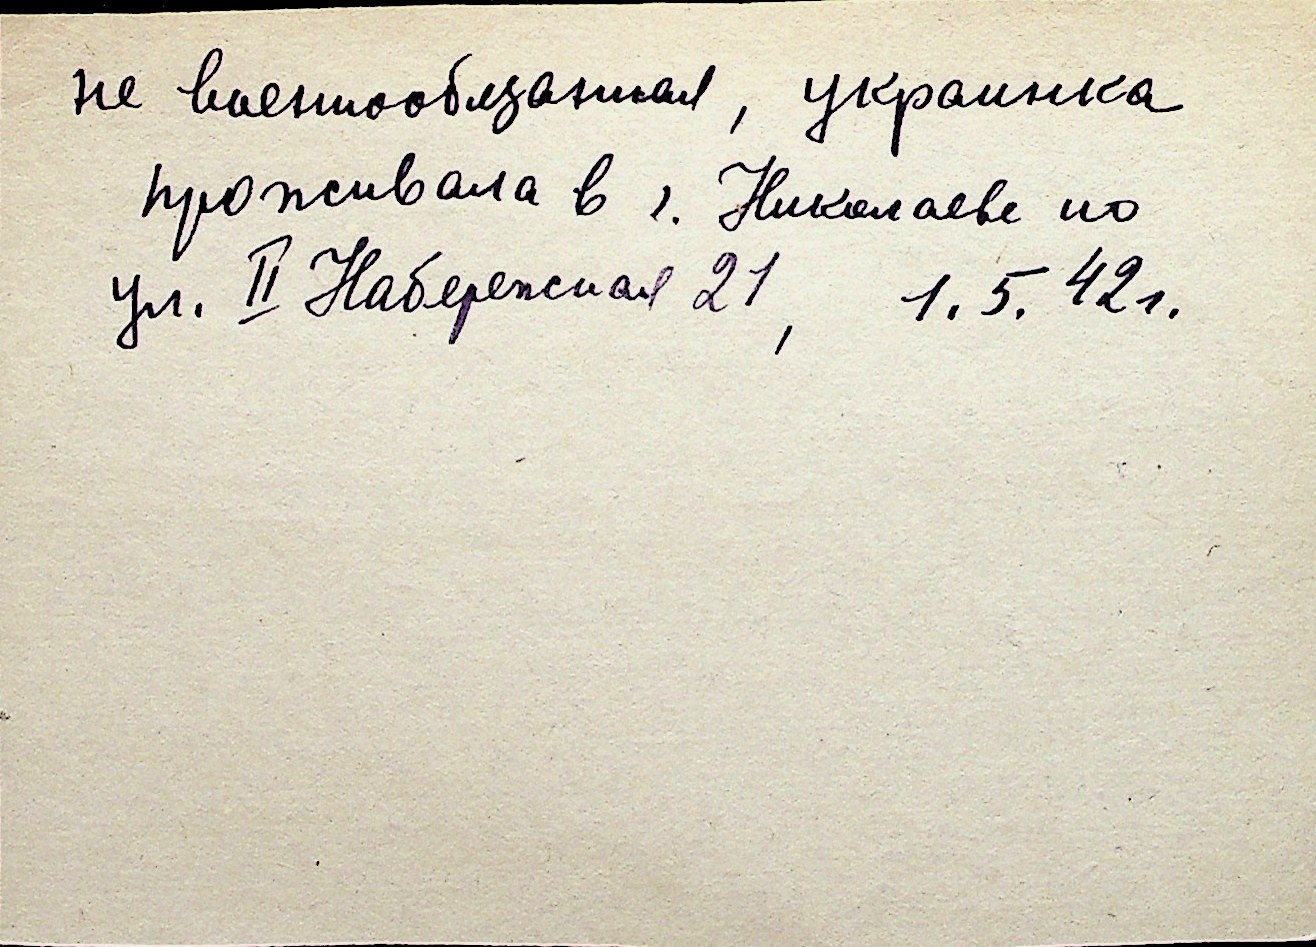 не военнообязанная, украинка
проживала в г. Николаеве по
ул. II Набережная 21, 1.5.42г.